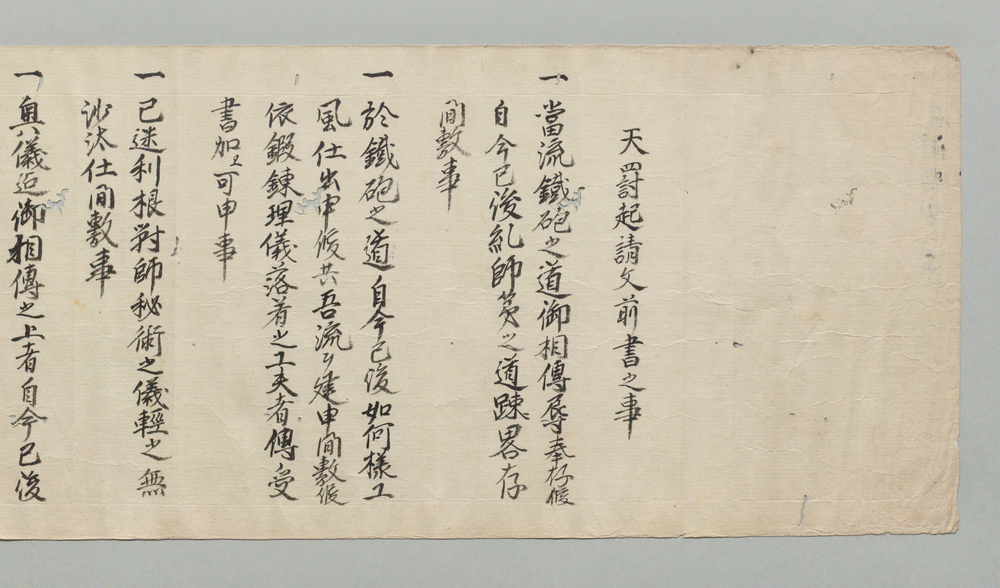 天罸起請文前書之事
一 當流鐵砲之道御相傳辱奉存候
自今已後糺師箕之道踈畧存
間敷事
一 於鐵砲之道自今已後如何様工
風仕出申候共吾流ゟ建申間敷候
依鍛錬理儀落着之工夫者傳受
書加え可申事
一 已迷利根對師秘術之儀輕之無
沙汰仕間敷事
一 奥儀迠御相傳之上者自今已後